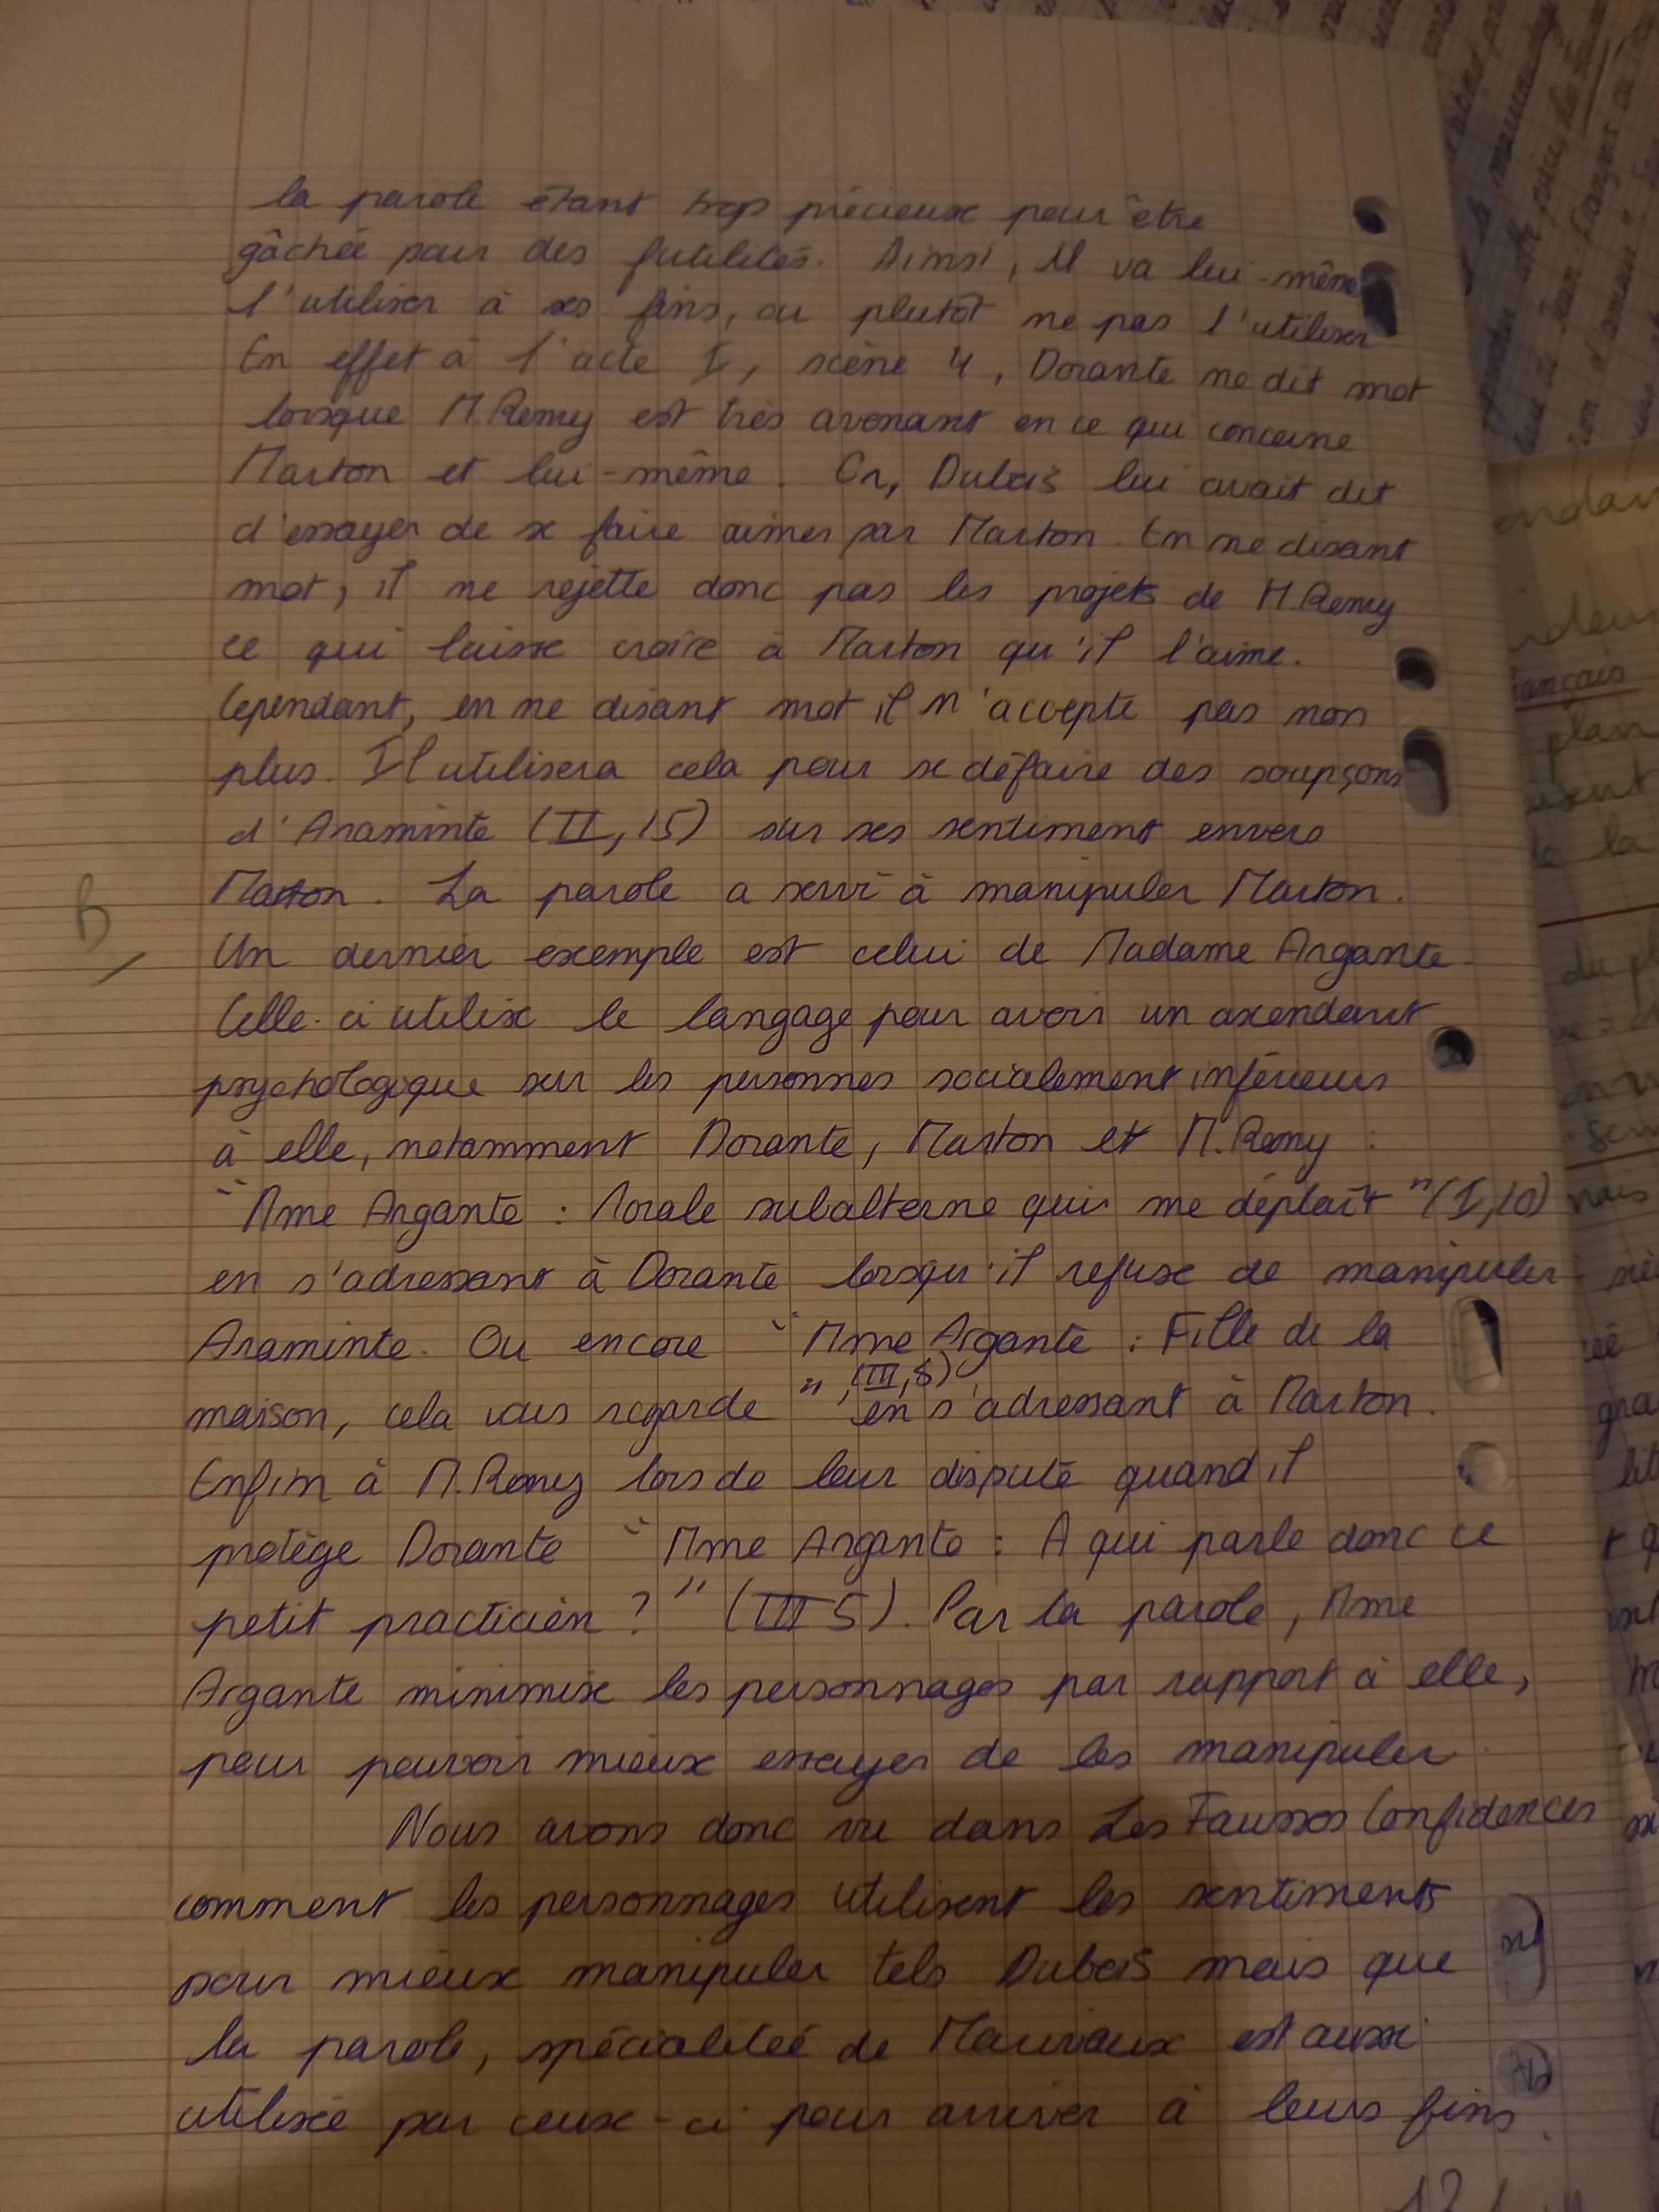 la parole étant trop précieuse pour être
gâchée pour des futilités. Ainsi, il va lui-même
l'utiliser à ses fins, ou plutôt ne pas l'utiliser
En effet à l'acte I, scène 4, Dorante ne dit mot
lorsque M.Remy est très avenant en ce qui concerne
Marton et lui-même. Or, Dubois lui avait dit
d'essayer de se faire aimer par Marton. En ne disant
mot, il ne rejette donc pas les projets de M.Remy
ce qui laisse croire à Marton qu'il l'aime.
Cependant, en ne disant mot il n'accepte pas non
plus. Il utilisera cela pour se défaire des soupçons
d'Araminte (II, 15) sur ses sentiment envers
Marton. La parole a servi à manipuler Marton.
B
Un dernier exemple est celui de Madame Argante.
Celle-ci utilise le langage pour avoir un axendant
psychologique sur les personnes socialement inférieurs
à elle, notamment Dorante, Marton et M.Remy :
"Mme Argante : Morale subalterne qui me déplaît" (I, 10)
en s'adressant à Dorante lorsqu'il refuse de manipuler
Araminte. Ou encore "Mme Argante : Fille de la
maison, cela vous regarde" (III, 8), en s'adressant à Marton.
Enfin à M.Remy lors de leur dispute quand il
protège Dorante "Mme Argante : A qui parle donc ce
petit practicien ?" (III 5). Par la parole, Mme
Argante minimise les personnages par rapport à elle,
pour pouvoir mieux essayer de les manipuler
Nous avons donc vu dans Les Fausses Confidences
comment les personnages utilisent les sentiments
pour mieux manipuler tels Dubois mais que
la parole, spécialitée de Marivaux est aussi
utilisée par ceux-ci pour arriver à leurs fins.